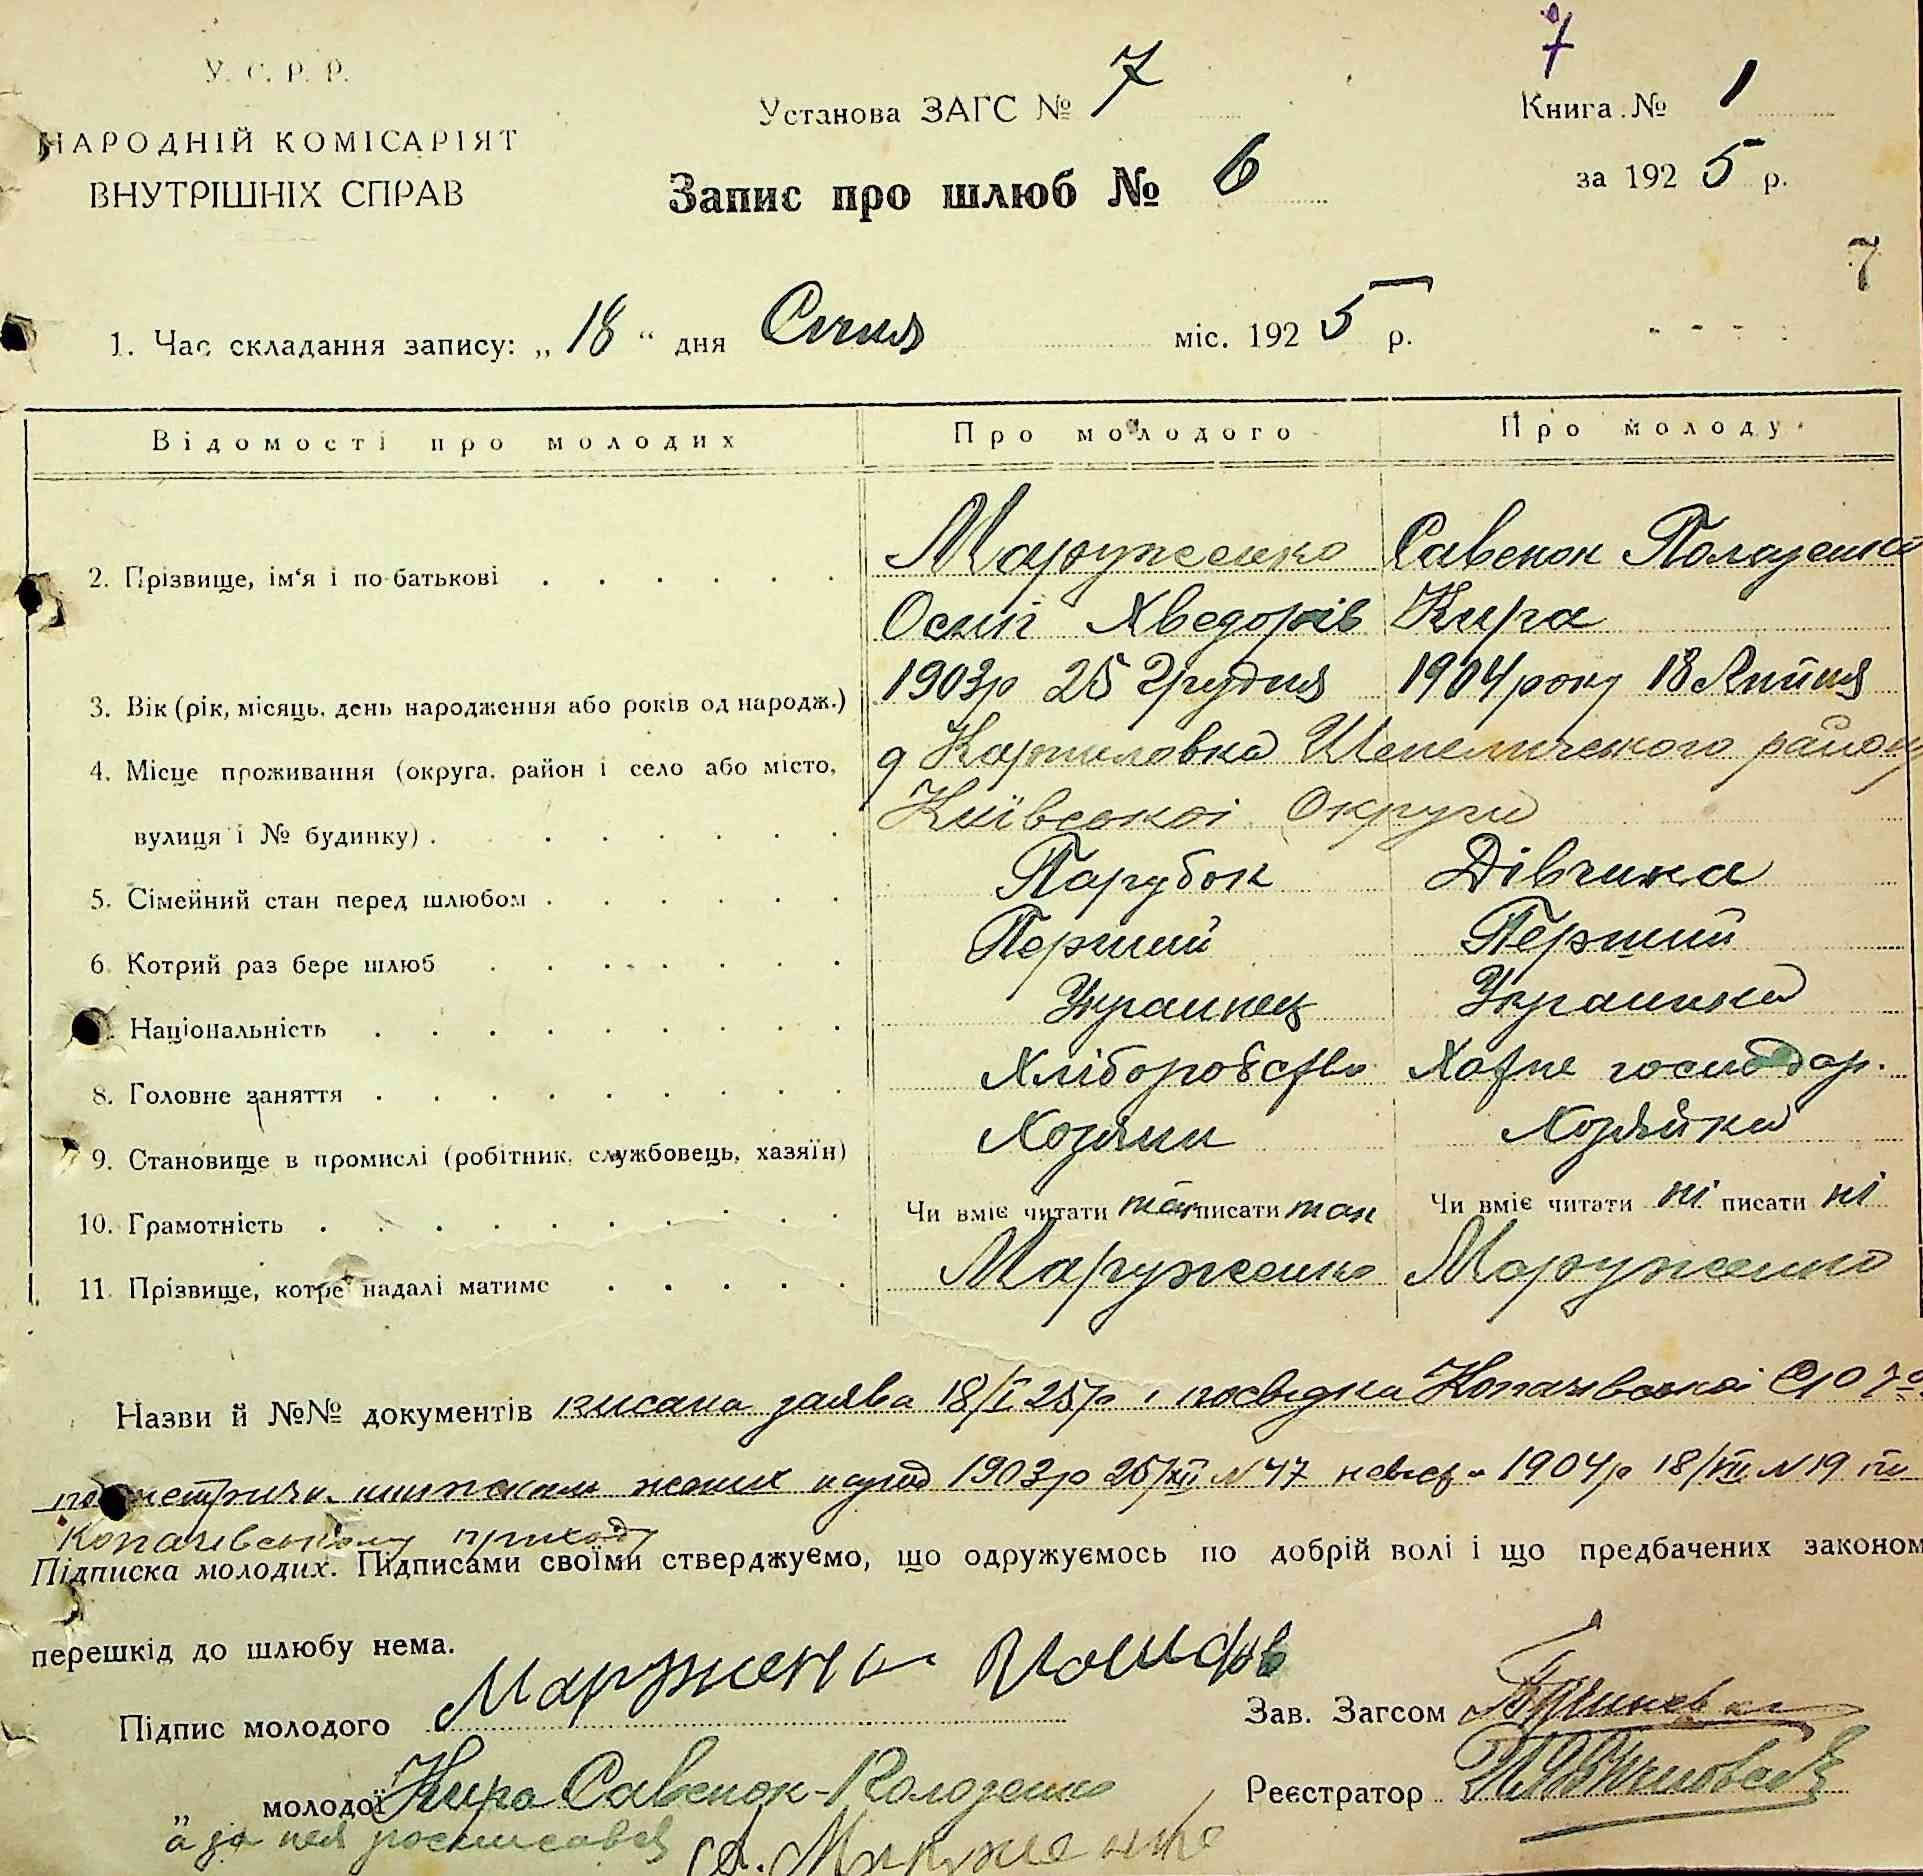 У. С. Р. Р.
НАРОДНІЙ КОМІСАРІЯТ
ВНУТРІШНІХ СПРАВ
Установа ЗАГС № 7
Запис про шлюб № 6
7
Книга № 1
за 1925 р.
7
1. Час складання запису: „ 18 “ дня Січня міс. 1925 р.
Відомості про молодих Про молодого Про молоду
2. Прізвище, ім‘я і по-батькові Маруженко Савенок
Осип Хведорів Кира
3. Вік (рік, місяць, день народження або років од народж.) 1903р 25 Грудня 1904 року 18 Липня
4. Місце проживання (округа, район і село або місто, Шепеличського району
вулиця і № будинку) Київської Округи
5. Сімейний стан перед шлюбом Парубок Дівчина
6. Котрий раз бере шлюб Перший Перший
Національність Украинец Украинка
8. Головне заняття Хліборобство Хатне господар.
9. Становище в промислі (робітник, службовець, хазяїн) Хозяин Хозяйка
10. Грамотність Чи вміє читати так писати так Чи вміє читати ні писати ні
11. Прізвище, котре надалі матиме Маруженко Маруженко
Назви й №№ документів писана заява 18/I 25р і посвідка Копачівської
1903р 25/XII N 47 1904р 18/VII N 19 по
Копачівському приходу
Підписка молодих. Підписами своїми стверджуємо, що одружуємось по добрій волі і що предбачених законом
перешкід до шлюбу нема.
Підпис молодого Маруженко
Зав. Загсом
„ молодої Кира Савенок-
Реєстратор
а за нея росписався